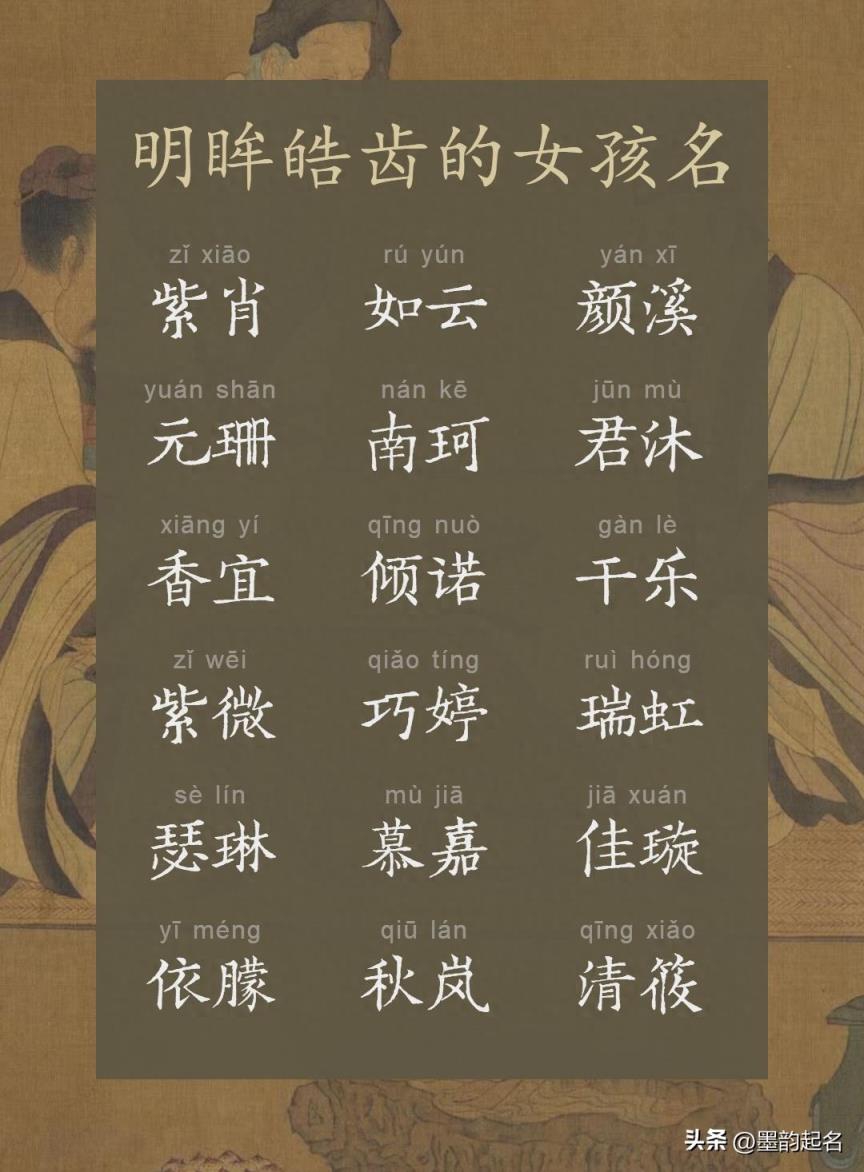 明眸皓齿的女孩名
zǐ xiāo rú yún yán xī
紫肖 如云 颜溪
yuán shān nán kē jūn mù
元珊 南珂 君沐
xiāng yí qīng nuò gàn lè
香宜 倾诺 干乐
zǐ wēi qiǎo tíng ruì hóng
紫微 巧婷 瑞虹
sè lín mù jiā jiā xuán
瑟琳 慕嘉 佳璇
yī méng qiū lán qīng xiǎo
依朦 秋岚 清筱
头条 @墨韵起名